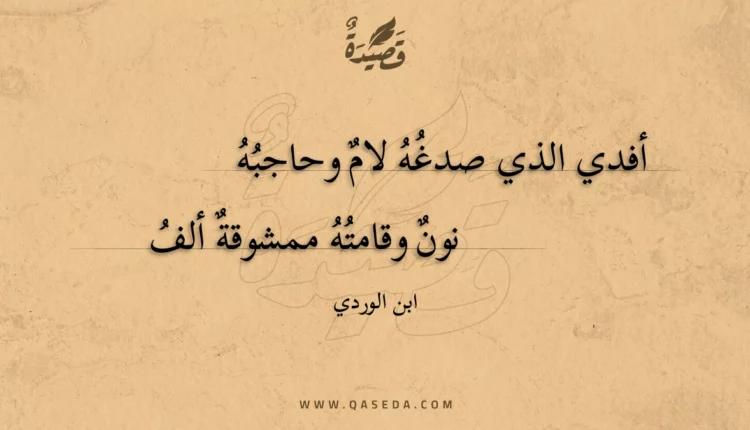 قَصِيْدَةٌ
أفدي الذي صدغُهُ لامٌ وحاجبُهُ
نونٌ وقامتُهُ ممشوقةٌ ألفُ
ابن الوردي
WWW.QASEDA.COM